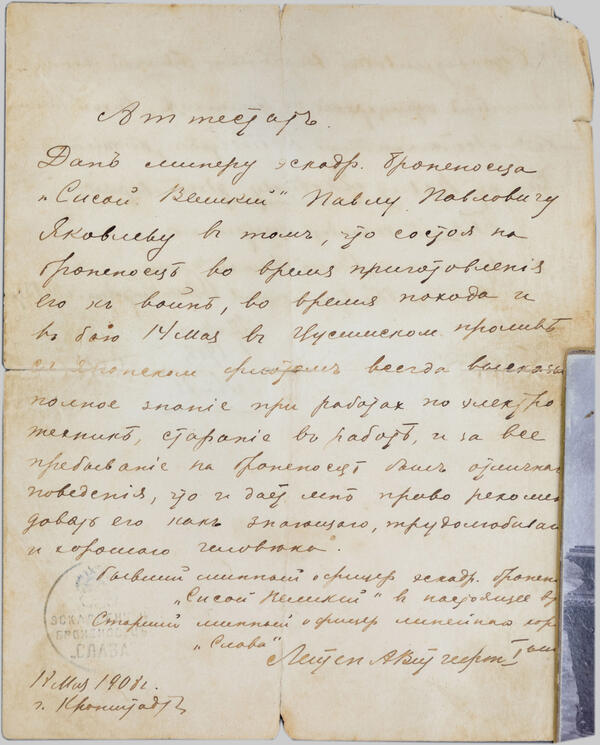 Аттестатъ.
Данъ минеру эскадр. броненосца
"Сисой Великій" Павлу Павловичу
Яковлеву въ томъ, что состоя на
броненосцѣ во время приготовленія
его къ войнѣ, во время похода и
въ бою 14 Мая въ Цусимскомъ проливѣ
съ Японскомъ флотомъ всегда высказы
полное знаніе при работахъ по электро
техникѣ, стараніе въ работѣ, и за все
пребываніе на броненосцѣ былъ отличнаг
поведенія, что и даетъ мнѣ право рекомен
довать его какъ знающаго, трудолюбиваг
и хорошаго человѣка.
Бывшій минный офицеръ эскадр. бронен
"Сисой Великій" въ настоящее вр
Старшій минный офицеръ линейнаго кор
"Слава"
Лейтен
18 Мая 1908 г.
г. Кронштадтъ
СЛАВА